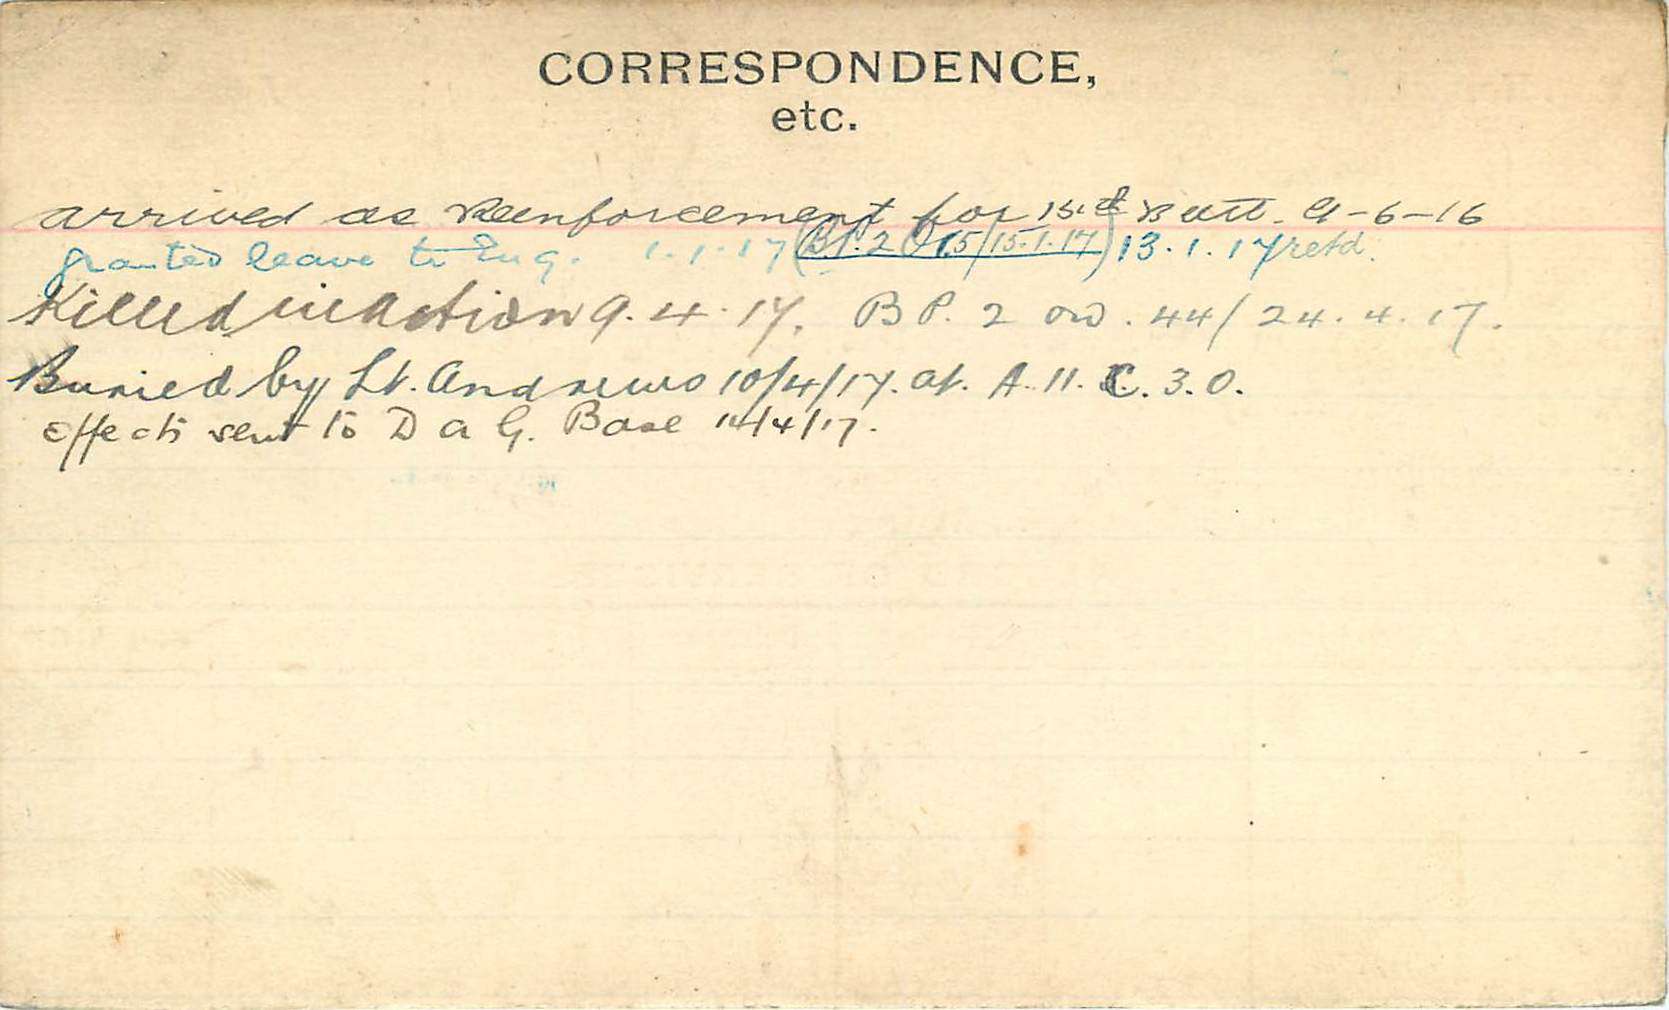 CORRESPONDENCE,
etc.
arrived as Reenforcement for Batt. 9-6-16
granted leave to Eng. 1.1.17 (Bt. 2 O 15/15.1.17) 13.1.17 retd.
Killed in action 9.4.17. B P. 2 ow. 44/24.4.17.
Buried by Lt. Andrews 10/4/17. at. A. 11. C. 3. O.
Effects sent to D a G. Base 14/4/17.